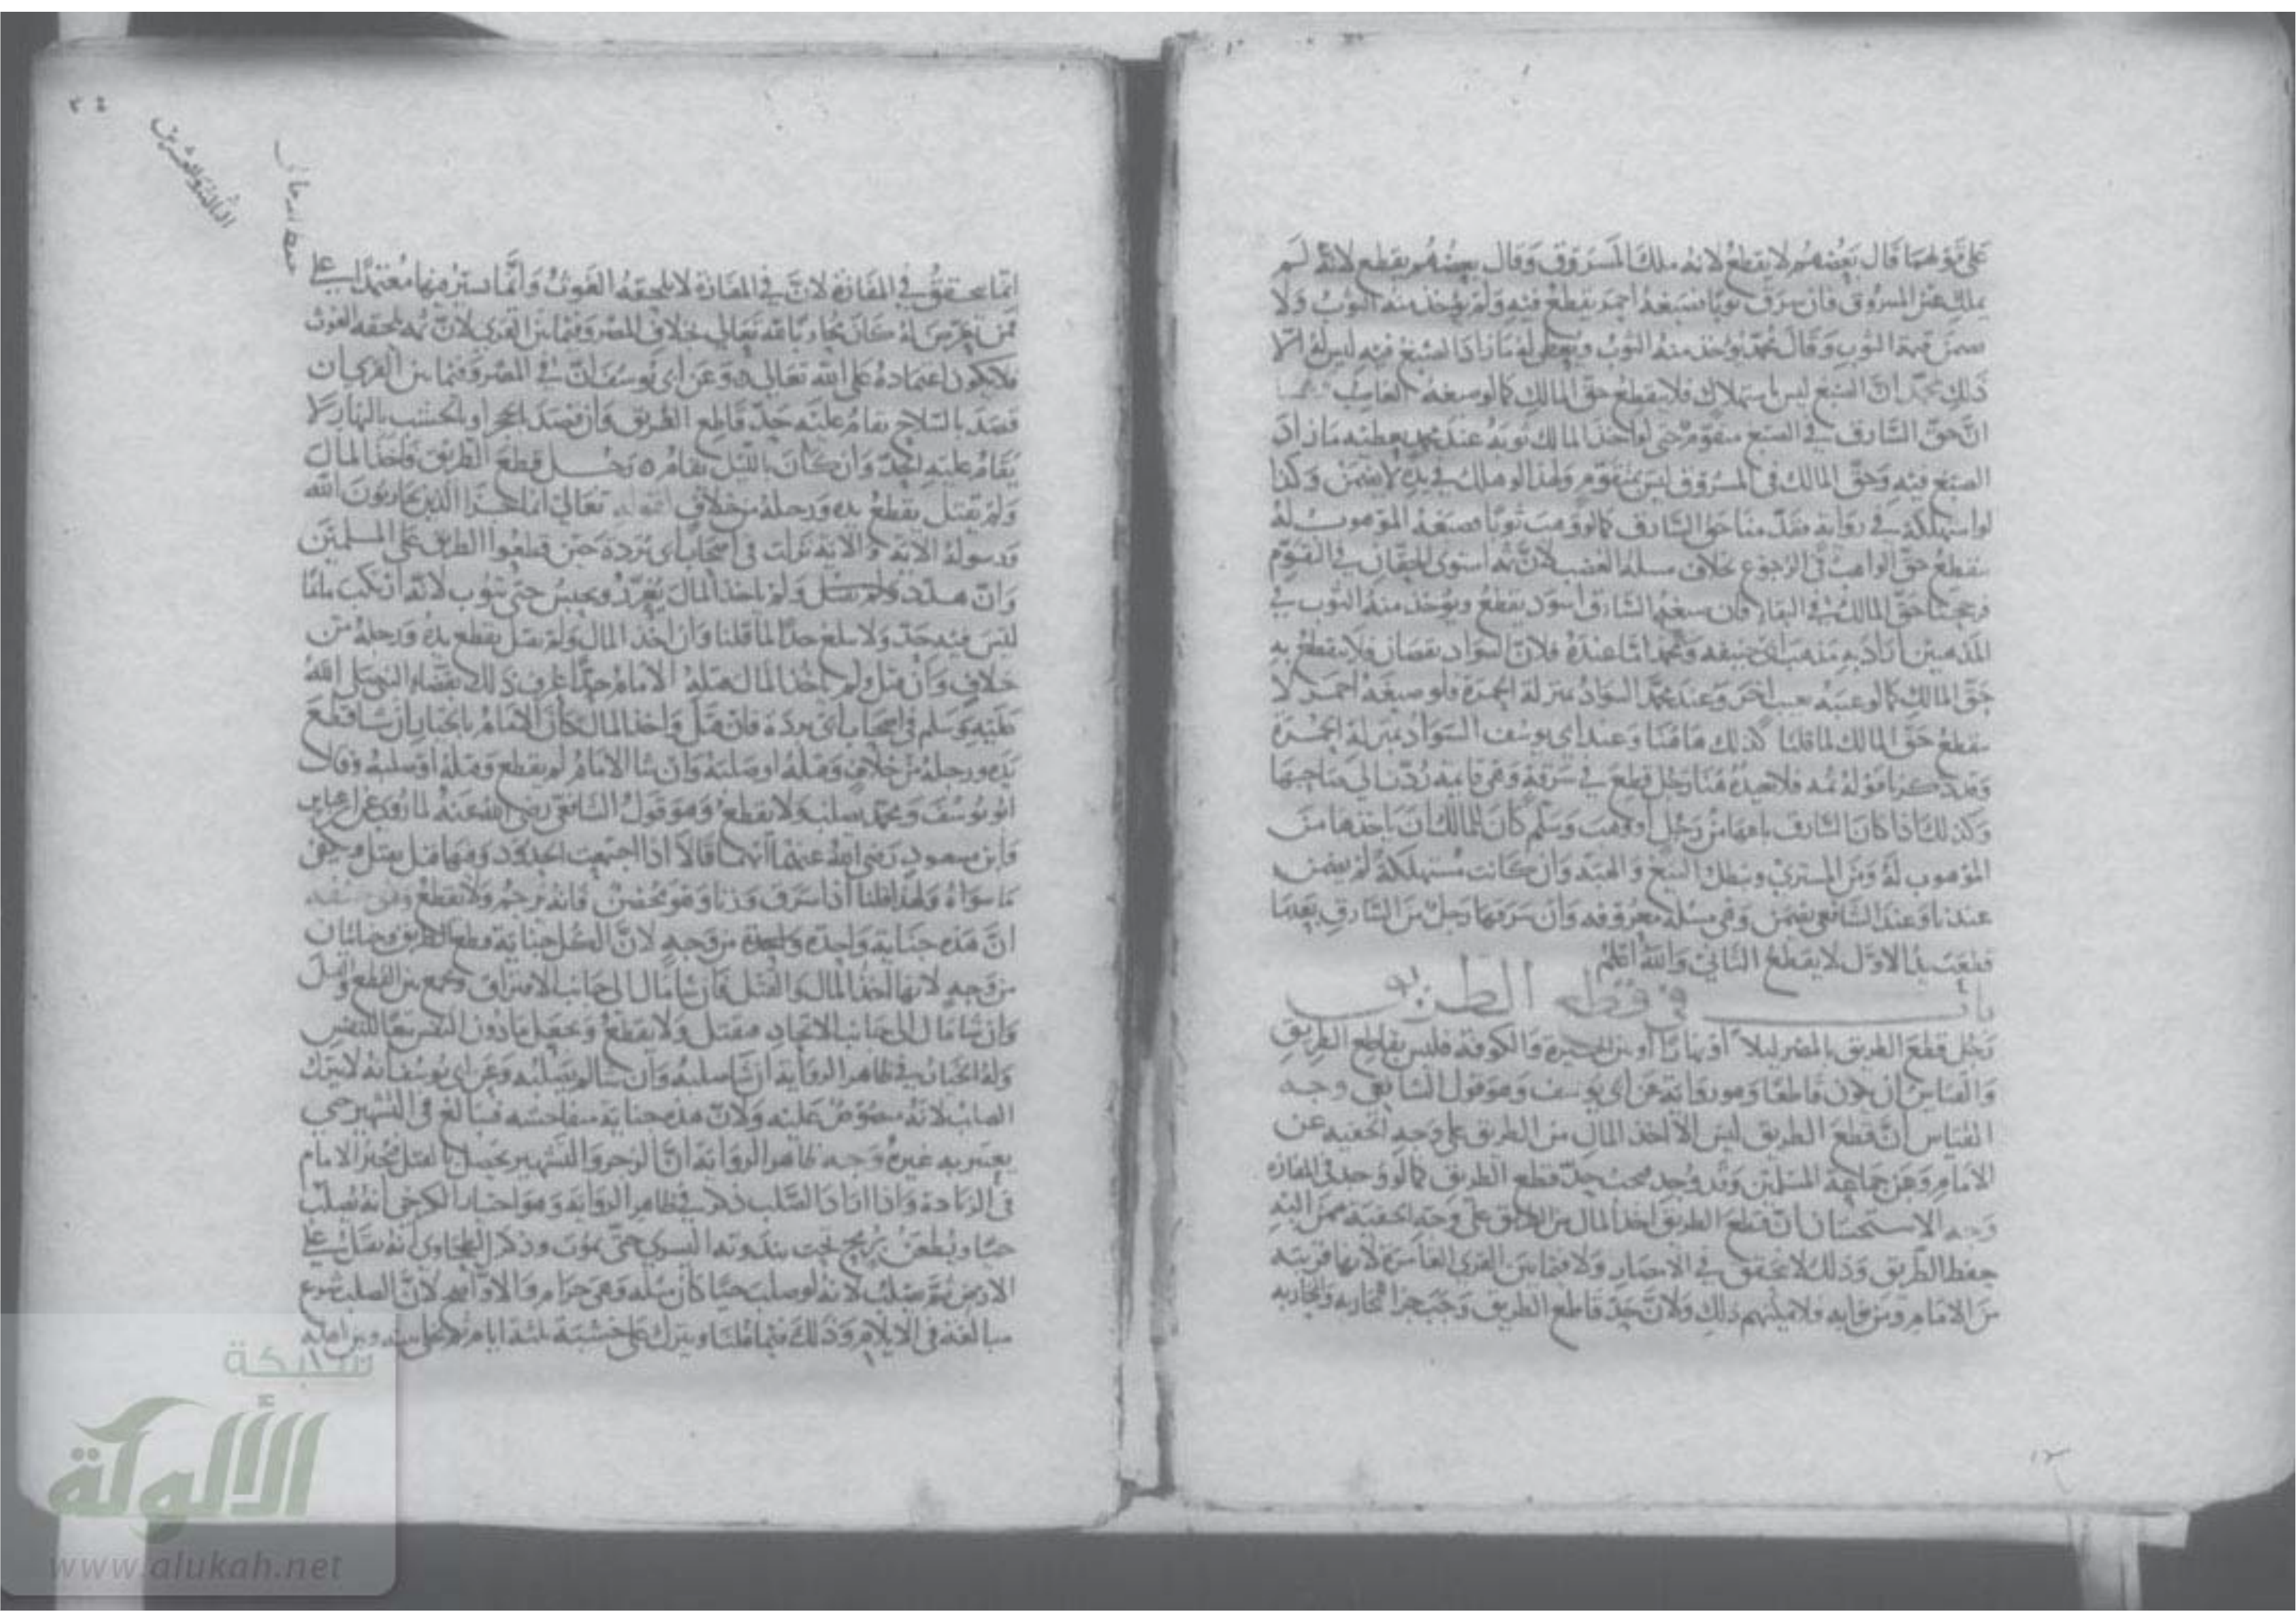 على قولهما قال بعضهم لا يقطع لانه ملك المسروق وقال بعضهم يقطع لانه لم
يملك عين المسروق فان سرق ثوبا فصبغه احمر يقطع فيه ولم يؤخذ منه الثوب ولا
يضمن قيمة الثوب وقال محمد يؤخذ منه الثوب ويعطى له ما زاد الصبغ فيه ليس له الا
ذلك لمحمد ان الصبغ ليس باستهلاك فلا يقطع حق المالك كما لو صبغه الغاصب
ان حق السارق في الصبغ متقوم حتى لو اخذ المالك ثوبه عند محمد يعطيه ما زاد
الصبغ فيه وحق المالك في المسروق ليس بمتقوم ولهذا لو هلك في يده لا يضمن وكذا
لو استهلكه في رواية فقدمنا حق السارق كما لو وهب ثوبا فصبغه الموهوب له
ينقطع حق الواهب في الرجوع بخلاف مسئلة الغصب لان ثمه استوى الحقان في التقوم
فرجحنا حق المالك في البقاء فان صبغه السارق اسود يقطع ويؤخذ منه الثوب في
المذهبين اراد به مذهب ابي حنيفه ومحمد اما عنده فلان السواد نقصان فلا ينقطع به
حق المالك كما لو عيبه بعيب اخر وعند محمد السواد بمنزلة الحمرة فلو صبغه احمر لا
ينقطع حق المالك لما قلنا كذلك هاهنا وعند ابي يوسف السواد بمنزلة الحمرة
وقد ذكرنا قوله ثمه فلا نعيده هنا رجل قطع في سرقة وهي قائمه ردت الى صاحبها
وكذلك اذا كان السارق باعها من رجل او وهب وسلم كان للمالك ان ياخذها من
الموهوب له ومن المشتري وبطل البيع والهبة وان كانت مستهلكة لم يضمن
عندنا وعند الشافعي يضمن وهي مسئلة معروفه وان سرقها رجل من السارق بعدما
قطعت يد الاول لا يقطع الثاني والله اعلم
باب في قطع الطريق
رجل قطع الطريق بالمصر ليلا او نهارا او بين الحيرة والكوفة فليس بقاطع الطريق
والقياس ان يكون قاطعا وهو رواية عن ابي يوسف وهو قول الشافعي وجه
القياس ان قطع الطريق ليس الا اخذ المال من الطريق على وجه الخفيه عن
الامام وعن جماعة المسلمين وقد وجد فيجب حد قطع الطريق كما لو وجد في المفازة
وجه الاستحسان ان قطع الطريق اخذ المال من الطريق على وجه الخفية ممن اليه
حفظ الطريق وذلك لا يتحقق في الامصار ولا فيما بين القرى العامرة لانها قريبة
من الامام ومن نوابه ذلك ولان حد قاطع الطريق وجب جزا المحاربه والمحاربه
انما يتحقق في المفازة لان في المفازة لا يلحقه الغوث وانما يستر فيها معتمدا على
ممن تعرض له كان محاربا لله تعالى بخلاف المصر وفيما بين القرى لان ثمه يلحقه الغوث
فلا يكون اعتماده على الله تعالى وعن ابي يوسف ان في المصر وفيما بين القرى ان
قصد بالسلاح يقام عليه حد قاطع الطريق وان قصد بالحجر او بالخشب بالنهار لا
يقام عليه الحد وان كان بالليل يقام رجل قطع الطريق واخذ المال
ولم يقتل يقطع يده ورجله من خلاف لقوله تعالى انما جزا الذين يحاربون الله
ورسوله الاية والاية نزلت في اصحاب ابي بردة حين قطعوا الطريق على المسلمين
وان هدد ولم يقتل ولم ياخذ المال يعزر ويحبس حتى يتوب لانه ارتكب ما
ليس فيه حد ولا يبلغ حدا لما قلنا وان اخذ المال ولم يقتل يقطع يده ورجله من
خلاف وان قتل ولم ياخذ المال يقتله الامام حدا عرف ذلك بقضاء النبي صلى الله
عليه وسلم في اصحاب ابي بردة فان قتل واخذ المال كان الامام بالخيار ان شا قطع
يده ورجله من خلاف وقتله او صلبه وان شا الامام لم يقطع وقتله او صلبه وقال
ابو يوسف ومحمد يصلبه ولا يقطع وهو قول الشافعي رضي الله عنه لما روي عن ابن عباس
وابن مسعود رضي الله عنهما انهما قالا اذا اجتمعت الحدود وفيها قتل يقتل ويلغى
ما سواه ولهذا قلنا اذا سرق وزنا وهو محصن فانه يرجم ولا يقطع
ان هذه جناية واحدة من وجه لان الكل جناية قطع الطريق وجنايتان
من وجه لانها اخذ المال والقتل فان شا مال الى جانب الافتراق وجمع بين القطع والقتل
وان شا مال الى جانب الاتحاد فيقتل ولا يقطع ويجعل ما دون النفس تبعا للنفس
وله الخيار في ظاهر الرواية ان شا صلبه وان شا لم يصلبه وعن ابي يوسف انه لا يترك
الصلب لانه منصوص عليه ولان هذه جناية متفاحشه فيبالغ في التشهير حتى
يعتبر به غيره وجه ظاهر الرواية ان الزجر والتشهير يحصل بالقتل فيخير الامام
في الزيادة واذا اراد الصلب ذكر في ظاهر الرواية وهو اختيار الكرخي انه يصلب
حيا ويطعن برمح تحت ثندوته اليسرى حتى يموت وذكر الطحاوي انه يقتل على
الارض ثم يصلب لانه لو صلب حيا كان مثلة وهي حرام والاول اصح لان الصلب شرع
مبالغة في الايلام وذلك فيما قلنا ويترك على خشبة ثلثة ايام
شبكة
الألوكة
www.alukah.net